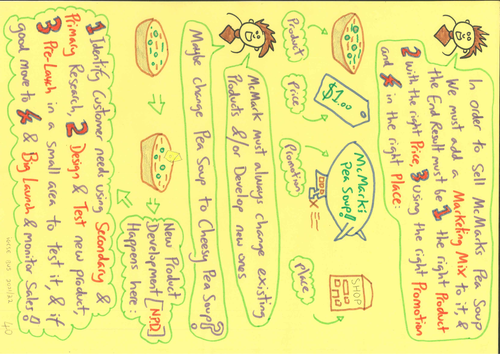 In order to Sell McMarks Pea Soup
We must add a Marketing Mix to it, &
the End Result must be 1 the right Product
2 with the right Price, 3 Using the right Promotion
and 4 in the right Place:
Product
Price
Promotion
Place
$1.00
McMarks
Pea Soup!
SHOP
McMark must always change existing
Products &/or Develop new ones
Maybe change Pea Soup to Cheesy Pea Soup!?
New Product
Development [NPD]
Happens here:
1 Identify Customer needs using Secondary &
Primary Research, 2 Design & Test new product,
3 Pre-Lauch in a small area to test it, & if
good move to 4 & Big Launch & monitor sales!
40